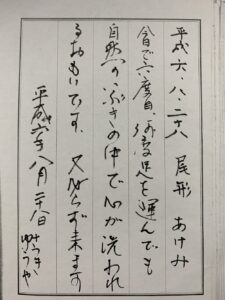 平成六・八・二十八 尾形 あけみ
今日で六度目。何度足を運んでも
自然のいぶきの中で心が洗われ
るおもいです。又必らず来ます
平成六年八月二八日
みつき
ゆうや